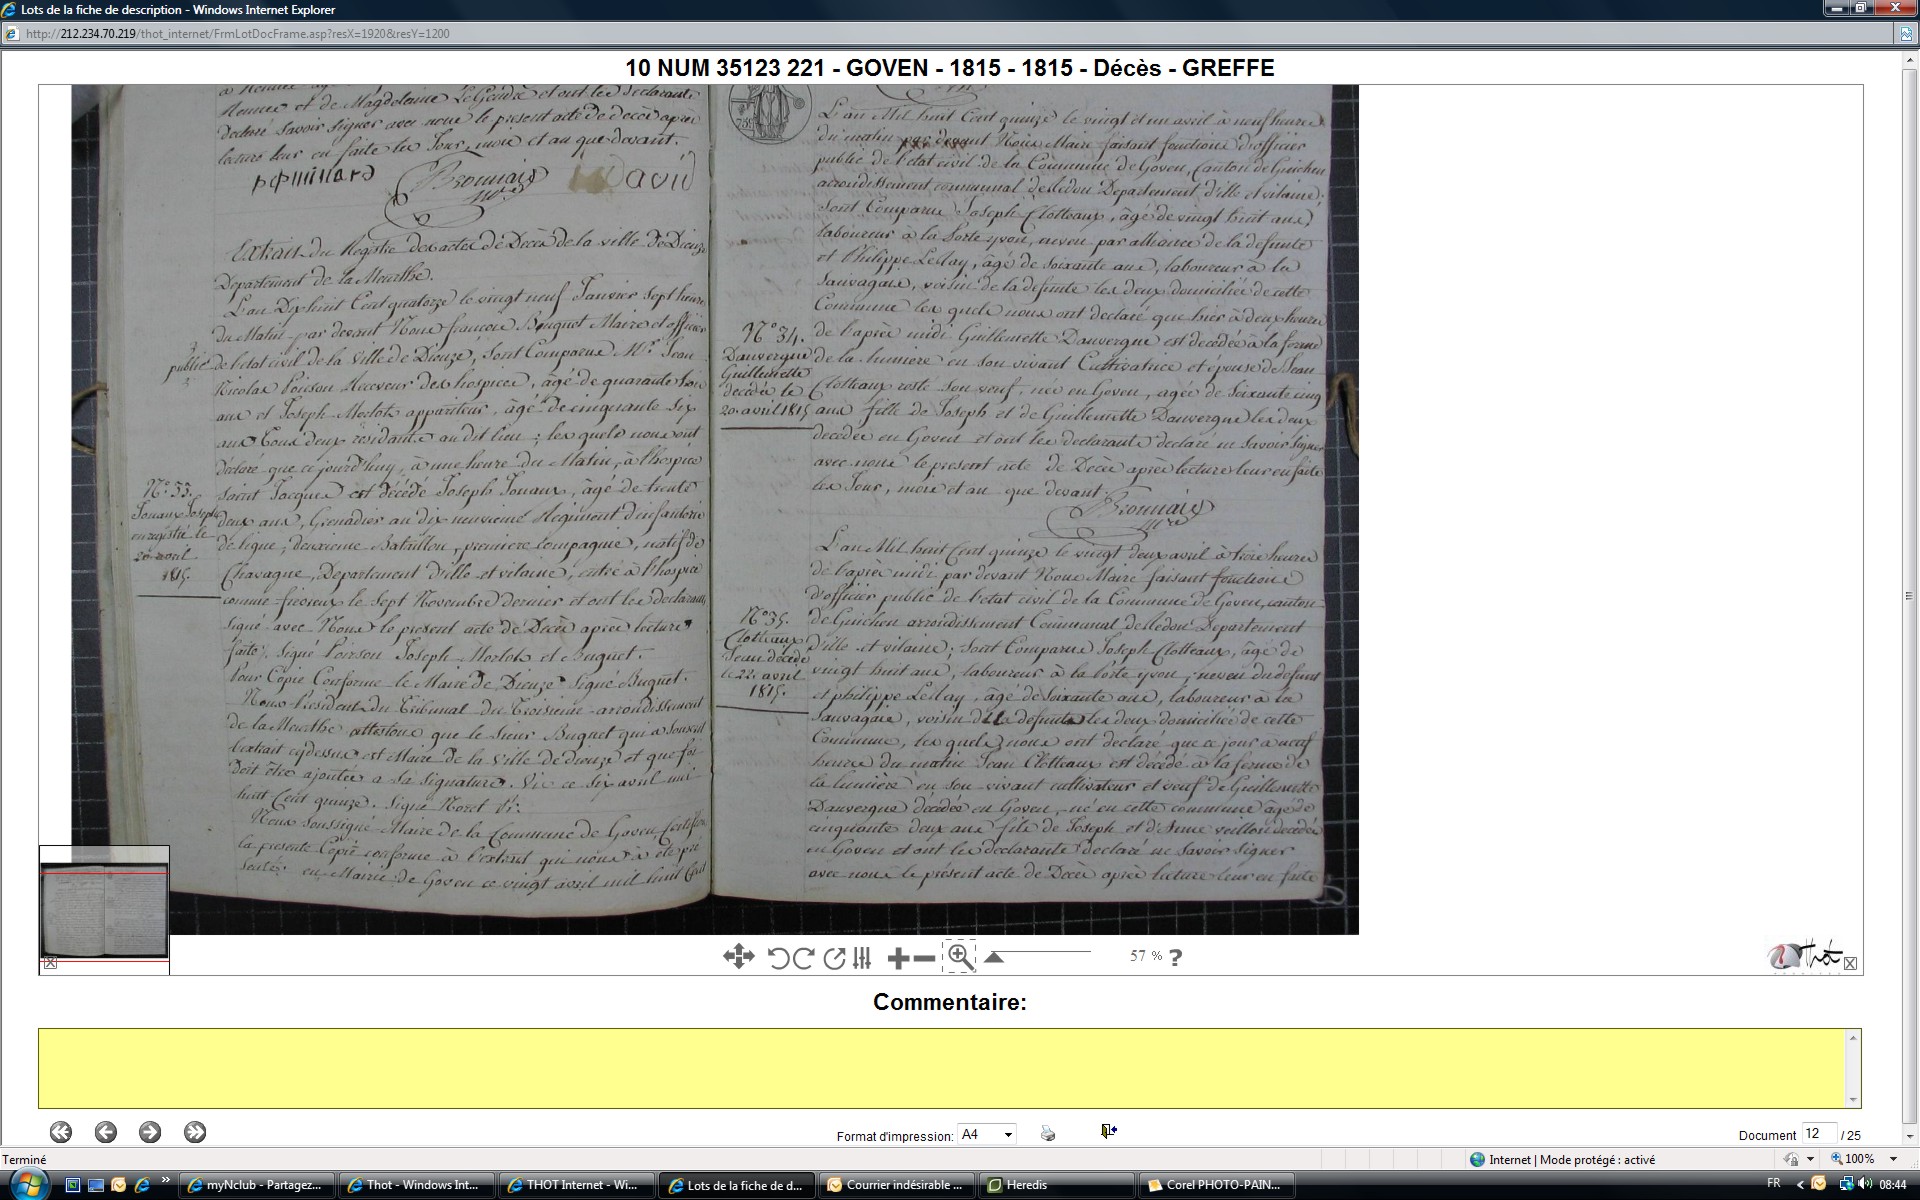 Lots de la fiche de description - Windows Internet Explorer
http://212.234.70.219/thot_internet/FrmLotDocFrame.asp?resX=1920&resY=1200
10 NUM 35123 221 - GOVEN - 1815 - 1815 - Décès - GREFFE
Rennes et de Magdelaine Le Gendre et ont les declarants
declaré Savoir Signer avec nous le present acte de decès après
lecture leur en faite les Jour, mois et an que devant.
Bronnais
David
Extrait du Registre des actes de Décès de la ville de Dieuze
Departement de la Meurthe.
L'an Dix huit Cent quatorze le vingt neuf Janvier Sept heures
du Matin par devant Nous françois Buquet Maire et officier
public de l'etat civil de la ville de Dieuze, Sont Comparus Mr. Jean
Nicolas Poirson Receveur des hospices, âgé de quarante
ans et Joseph Merlot appariteur, âgé de cinquante Six
ans Tous deux residants au dit lieu ; les quels nous ont
declaré que ce jourd'huy, à une heure du Matin, à l'hospice
N° 33.
Saint Jacques est décédé Joseph Jouaux, âgé de trente
Jouaux Joseph
deux ans, Grenadier au dix neuvieme Regiment d'infanterie
enregistré le
20 avril
1815.
de ligne, deuxieme Bataillon, premiere Compagnie, natif de
Chavagne, Departement d'ille et vilaine, entré à l'hospice
comme fiévreux le Sept Novembre dernier et ont les declarants
Signé avec Nous le present acte de Décès après lecture
faite. Signé Poirson Joseph Merlot et Buquet.
Pour Copie Conforme le Maire de Dieuze Signé Buquet.
Nous President du Tribunal du Troisieme arrondissement
de la Meurthe attestons que le Sieur Buquet qui a Souscrit
l'extrait cydessus est Maire de la ville de dieuze et que foi
doit être ajoutée a Sa Signature. Vic ce Six avril mil
huit Cent quinze. Signé
Nous Soussigné Maire de la Commune de Goven, Certifions
la presente Copie conforme à l'extrait qui nous a été pré
senté. en Mairie de Goven ce vingt avril mil huit Cent
L'an Mil huit Cent quinze le vingt et un avril à neuf heures
du matin par devant Nous Maire faisant fonctions d'officier
public de l'etat civil de la Commune de Goven, Canton de Guichen
arrondissement communal de Redon Departement d'ille et vilaine;
Sont Comparus Joseph Clotteaux, âgé de vingt huit ans,
laboureur à la Porte yvon, neveu par alliance de la defunte
et Philippe LeRay, âgé de Soixante ans, laboureur à la
Sauvagaie, voisin de la defunte les deux domiciliés de cette
Commune les quels nous ont declaré que hier à deux heures
N° 34.
Dauvergne
Guillemette
décédée le
20 avril 1815
de l'après midi Guillemette Dauvergne est decédée à la ferme
de la lumiere en son vivant Cultivatrice et épouse de Jean
Clotteaux resté Son veuf, née en Goven, agée de Soixante cinq
ans fille de Joseph et de Guillemette Dauvergne les deux
decedés en Goven et ont les declarants declaré ne Savoir Signer
avec nous le present acte de Décès après lecture leur en faite
les Jour, mois et an que devant.
Bronnais
L'an Mil huit Cent quinze le vingt deux avril à trois heures
de l'après midi par devant Nous Maire faisant fonctions
d'officier public de l'etat civil de la Commune de Goven, canton
N° 35.
Clotteaux
Jean décédé
le 22 avril
1815.
de Guichen arrondissement Communal de Redon Departement
d'ille et vilaine; Sont Comparus Joseph Clotteaux, âgé de
vingt huit ans, laboureur à la Porte yvon, neveu du defunt
et philippe LeRay, âgé de Soixante ans, laboureur à la
Sauvagaie, voisin les deux domiciliés de cette
Commune, les quels nous ont declaré que ce jour à neuf
heures du matin Jean Clotteaux est décédé à la ferme de
la lumière en son vivant cultivateur et veuf de Guillemette
Dauvergne décédée en Goven, né en cette commune âgé de
cinquante deux ans fils de Joseph et d'Anne veillon decedés
en Goven et ont les declarants declaré ne Savoir Signer
avec nous le présent acte de Décès après lecture leur en faite
57 % ?
Thot
Commentaire:
Format d'impression: A4
Document 12 / 25
Terminé
Internet | Mode protégé : activé
100%
myNclub - Partagez...
Thot - Windows Int...
THOT Internet - Wi...
Lots de la fiche de d...
Courrier indésirable ...
Heredis
Corel PHOTO-PAIN...
FR
08:44